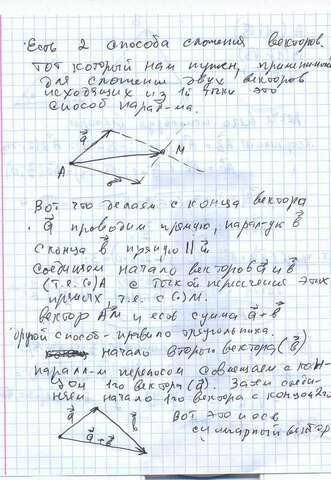 Есть 2 способа сложения векторов.
Тот который нам нужен, применим
для сложения двух векторов
исходящих из 1й точки это
способ парал-ма.
a
M
A
b
Вот что делаем с конца вектора
a проводим прямую, парал-ую b
с конца b прямую || a
соединяем начало векторов a и b
(т.е. (·) A с точкой пересечения этих
прямых, т.е. с (·) M.
вектор AM и есть сумма a+b
другой способ - правило треугольника.
начало второго вектора (b)
паралл-м переносом совмещаем с кон-
цом 1го вектора (a). Затем соеди-
няем начало 1го вектора с концом 2го
a
b
a+b
Вот это и есть
суммарный вектор